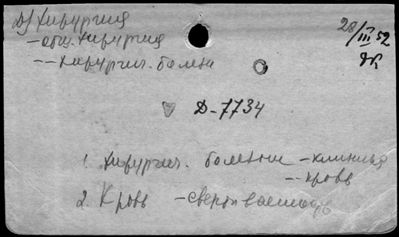 Д) Хирургия
- общ. хирургия
-- хирургич. болезн
28/III 52
Д-7734
1. Хирургич. болезни - клиника
-- кровь
2. Кровь -